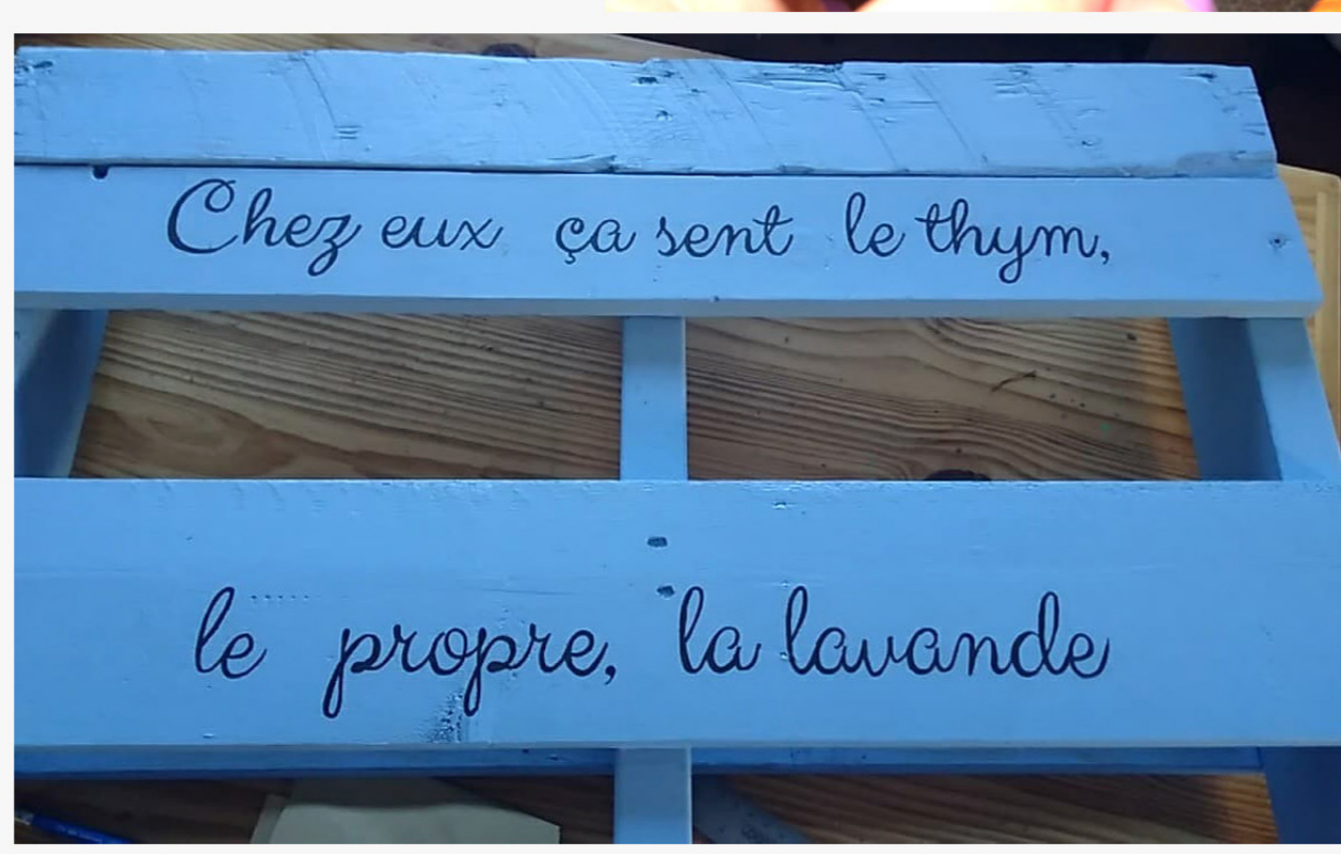 Chez eux ça sent le thym,
le propre, la lavande